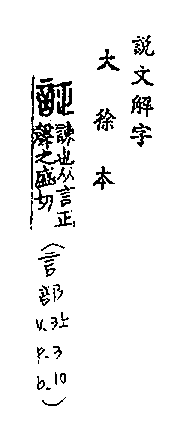 說文解字
大徐本
証
諫也从言正
聲之盛切
(言部 V.3上 P.3 b.10)